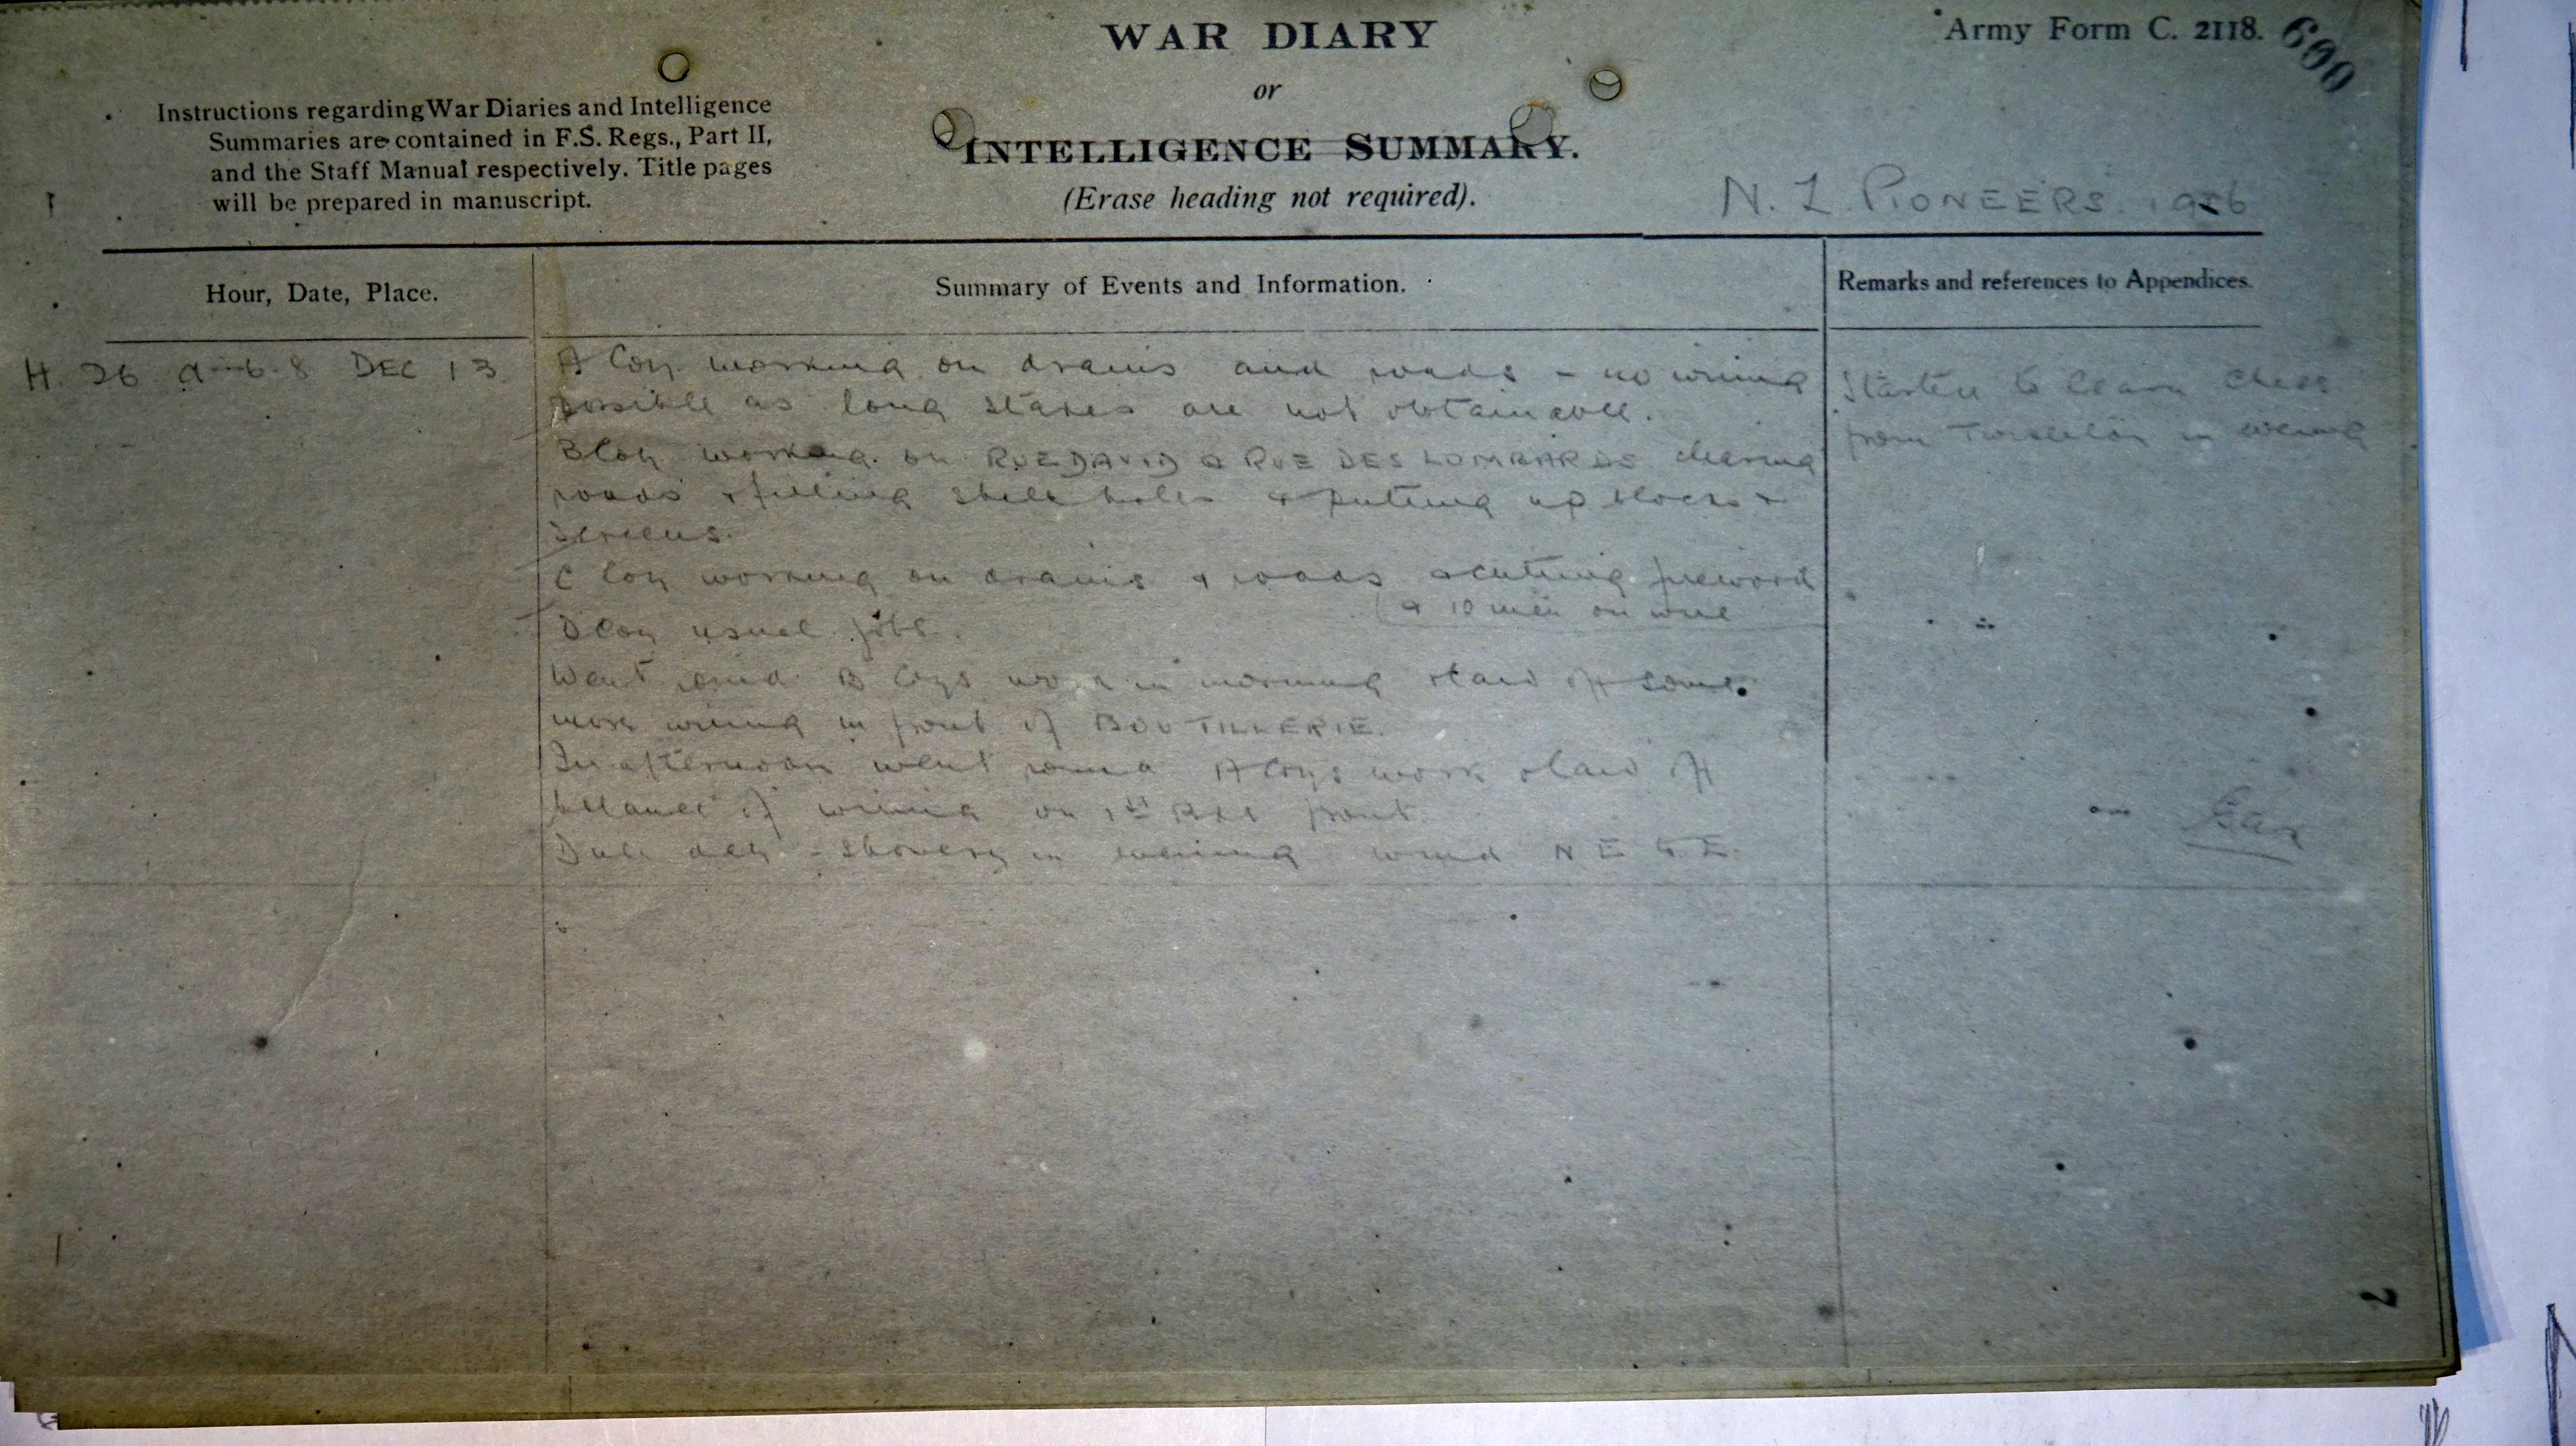 WAR DIARY
or
INTELLIGENCE SUMMARY.
(Erase heading not required).
Army Form C. 2118.
600
Instructions regarding War Diaries and Intelligence
Summaries are contained in F.S. Regs., Part II,
and the Staff Manual respectively. Title pages
will be prepared in manuscript.
N. Z. PIONEERS. 1916
Hour, Date, Place.
Summary of Events and Information.
Remarks and references to Appendices.
H. 26 a 6.8 DEC 13
A Coy working on drains and roads - no wiring
possible as long stakes are not obtainable.
B Coy working on RUE DAVID & RUE DES LOMBARDS clearing
roads & filling shell holes & putting up blocks &
screens.
C Coy working on drains & roads & cutting firewood
& 10 men on wire
D Coy usual jobs.
Went round B Coys work in morning & laid off some
more wiring in front of BOUTILLERIE.
In afternoon went round A Coys work & laid off
balance of wiring on 1st front.
Dull day - showery in evening wind N E & E.
Started to learn chess
from Twisleton in evening
2